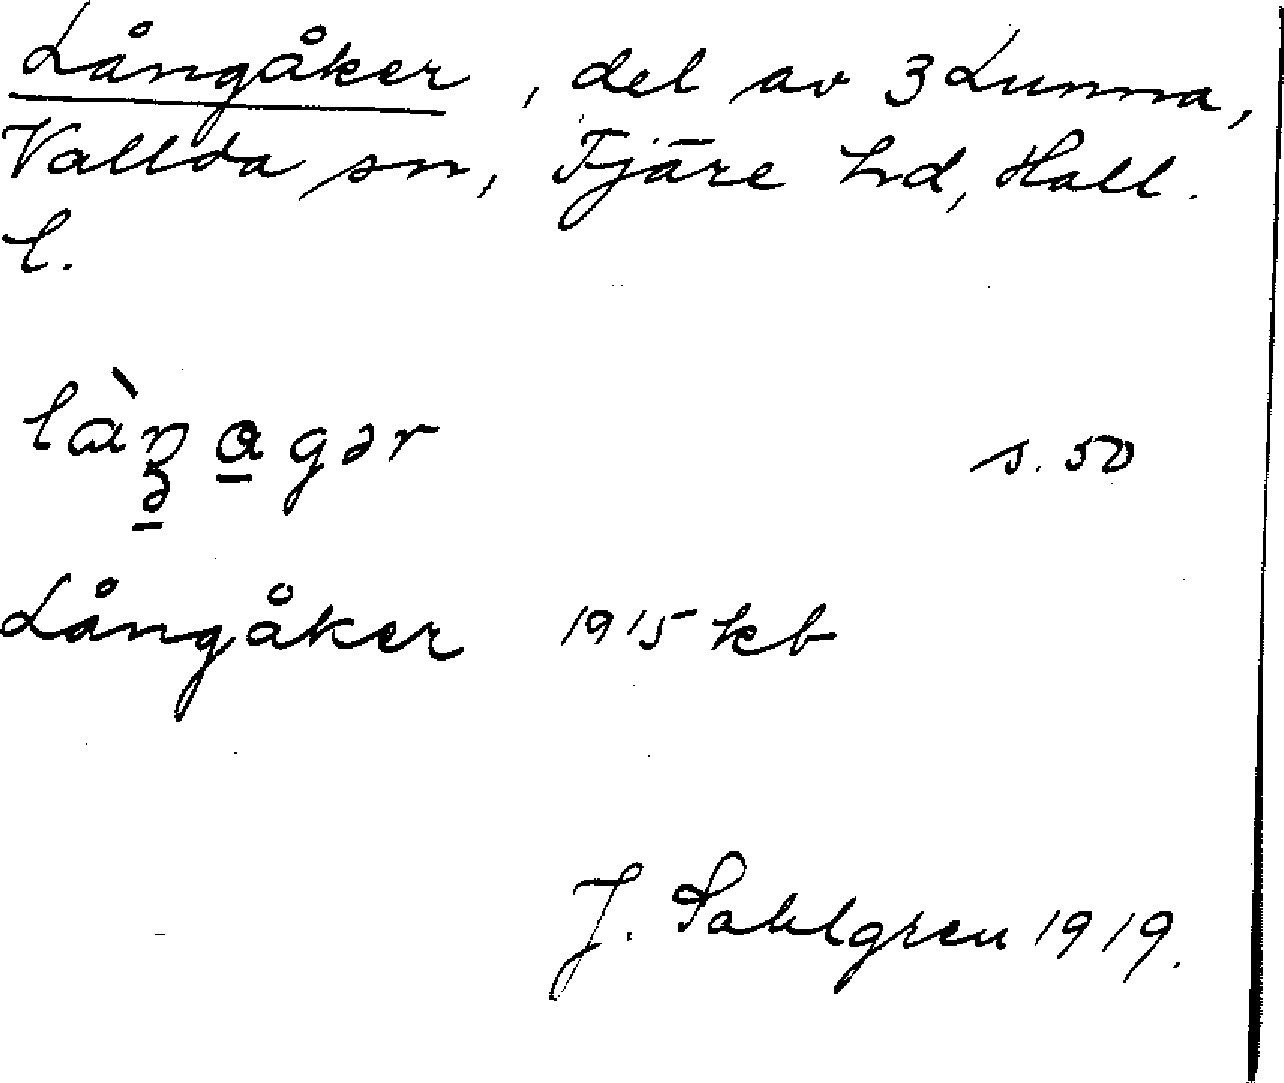 Långåker, del av 3 Lunna,
Vallda sn, Fjäre hd, Hall.
l.
s. 50
Långåker 1915 kb
J. Sahlgren 1919.